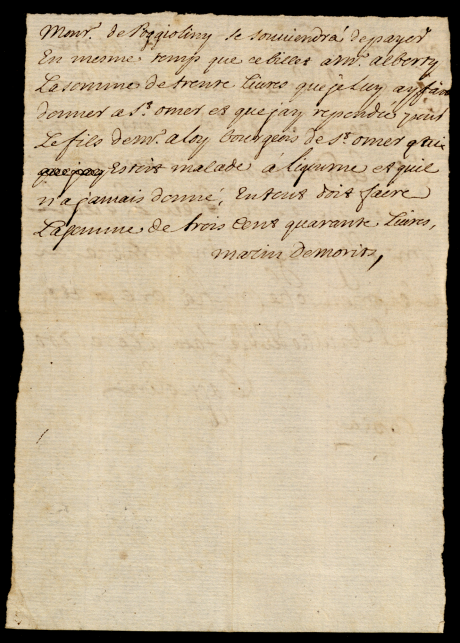 Monr. de Poggioliny se souviendrá de payer
En mesme temp que ce billet a mr. alberty
La somme de trente Livres que je Luy ay fait
donner a St. omer et que jay repondu pour
Le fils de mr. aloy bourgeois de St. omer qui
Estoit malade à Ligurne et quil
n'a jamais donné, Entout doit faire
La somme de trois Cent quarante Livres,
marin Demorits,